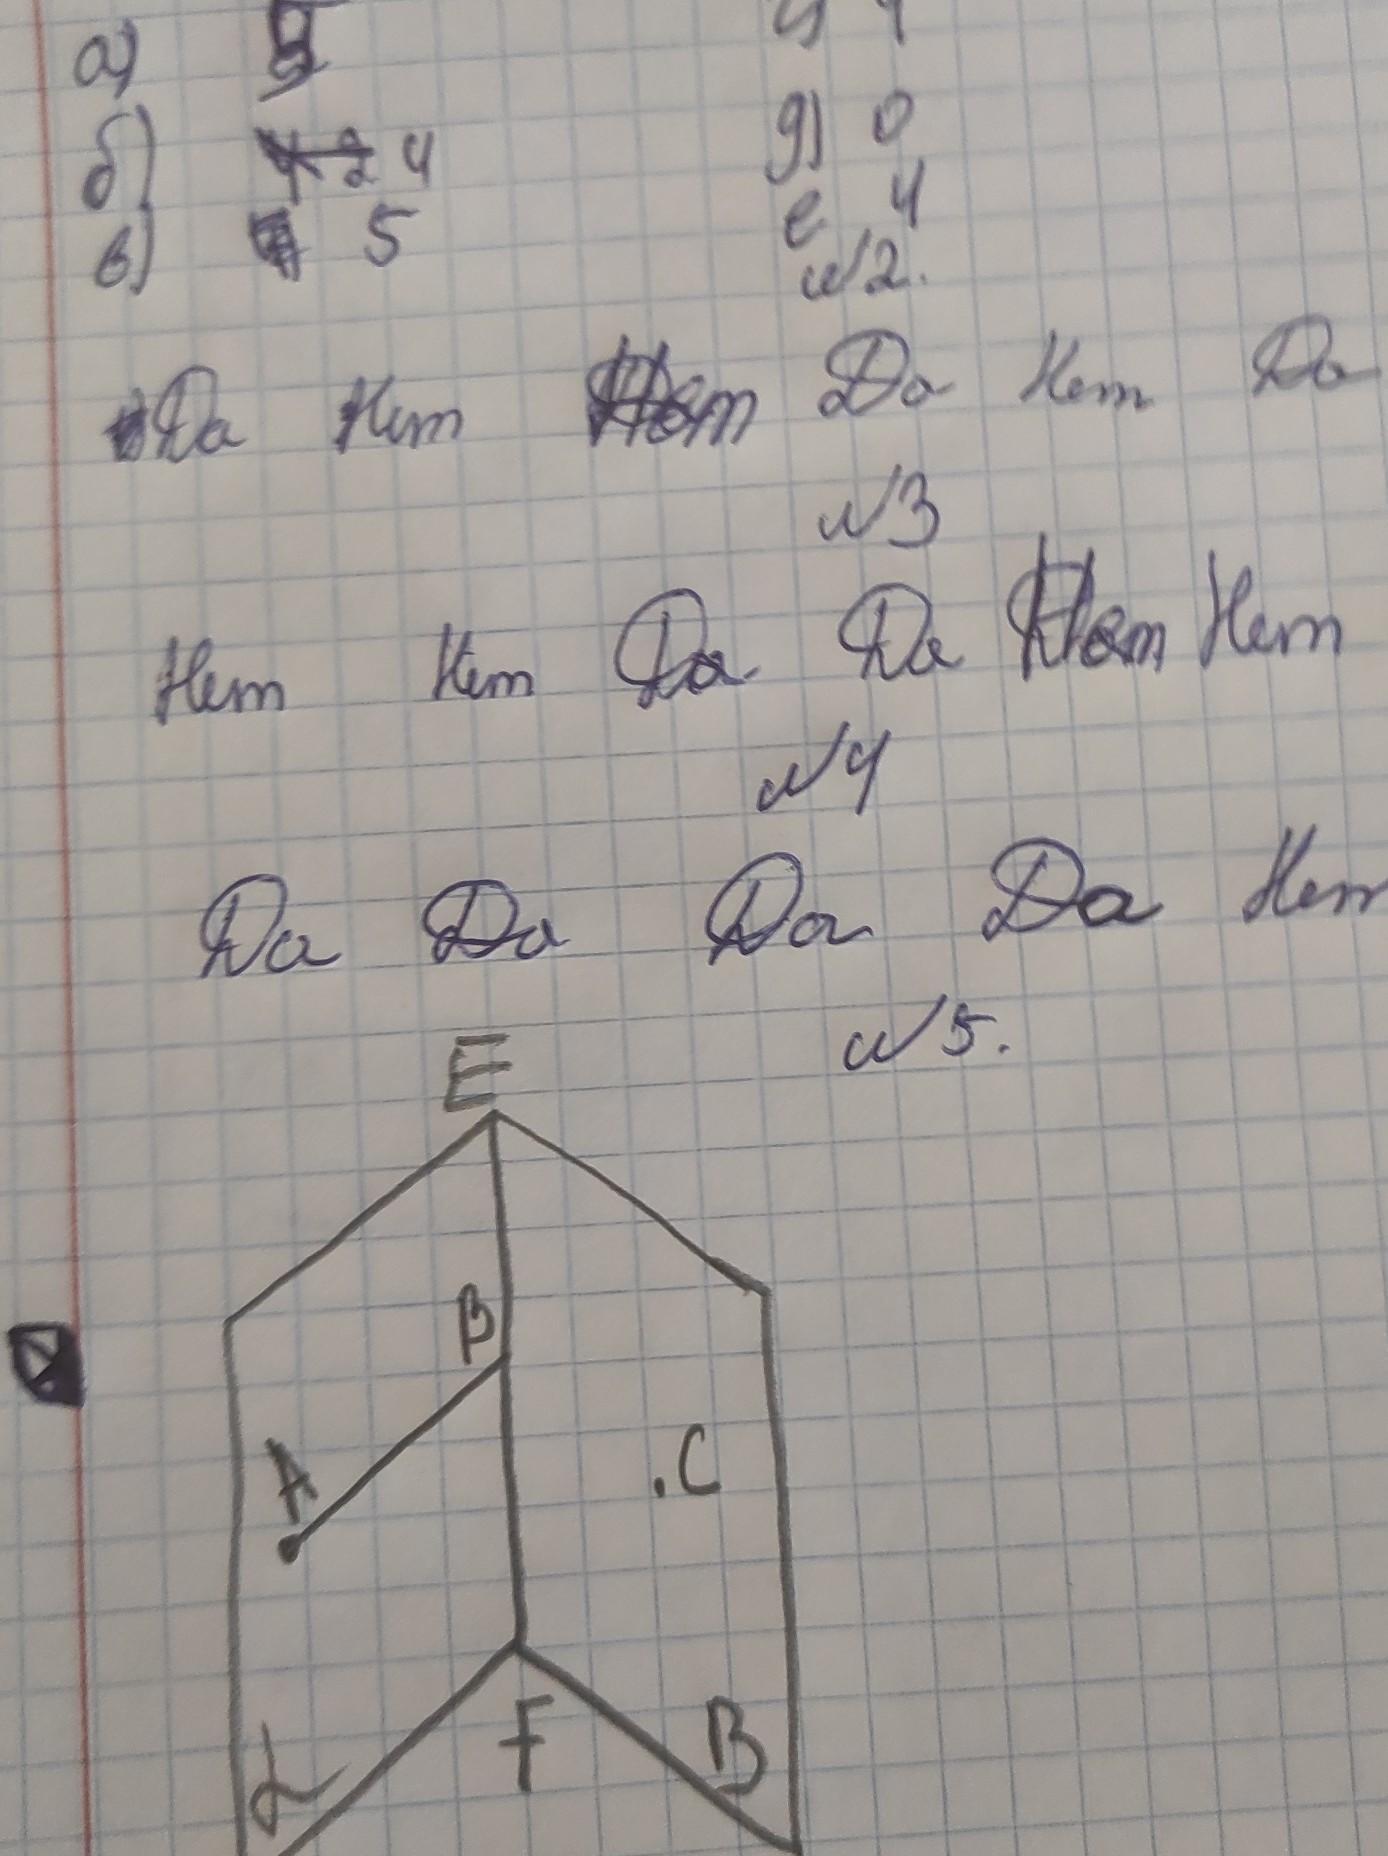 а) 5
б) 4
в) 5
4
д) 0
е 4
№2.
Да Нет Нет Да Нет Да
№3
Нет Нет Да Да Нет Нет
№4
Да Да Да Да Нет
№5.
E
B
A
.C
F
α
B